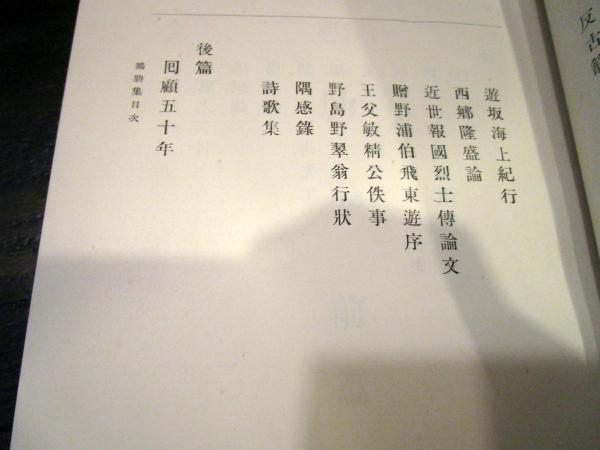 反古籠
遊坂海上紀行
西郷隆盛論
近世報國烈士傳論文
贈野浦伯飛東遊序
王父敏精公佚事
野島野翠翁行狀
隅感錄
詩歌集
後篇
回顧五十年
鷄肋集目次